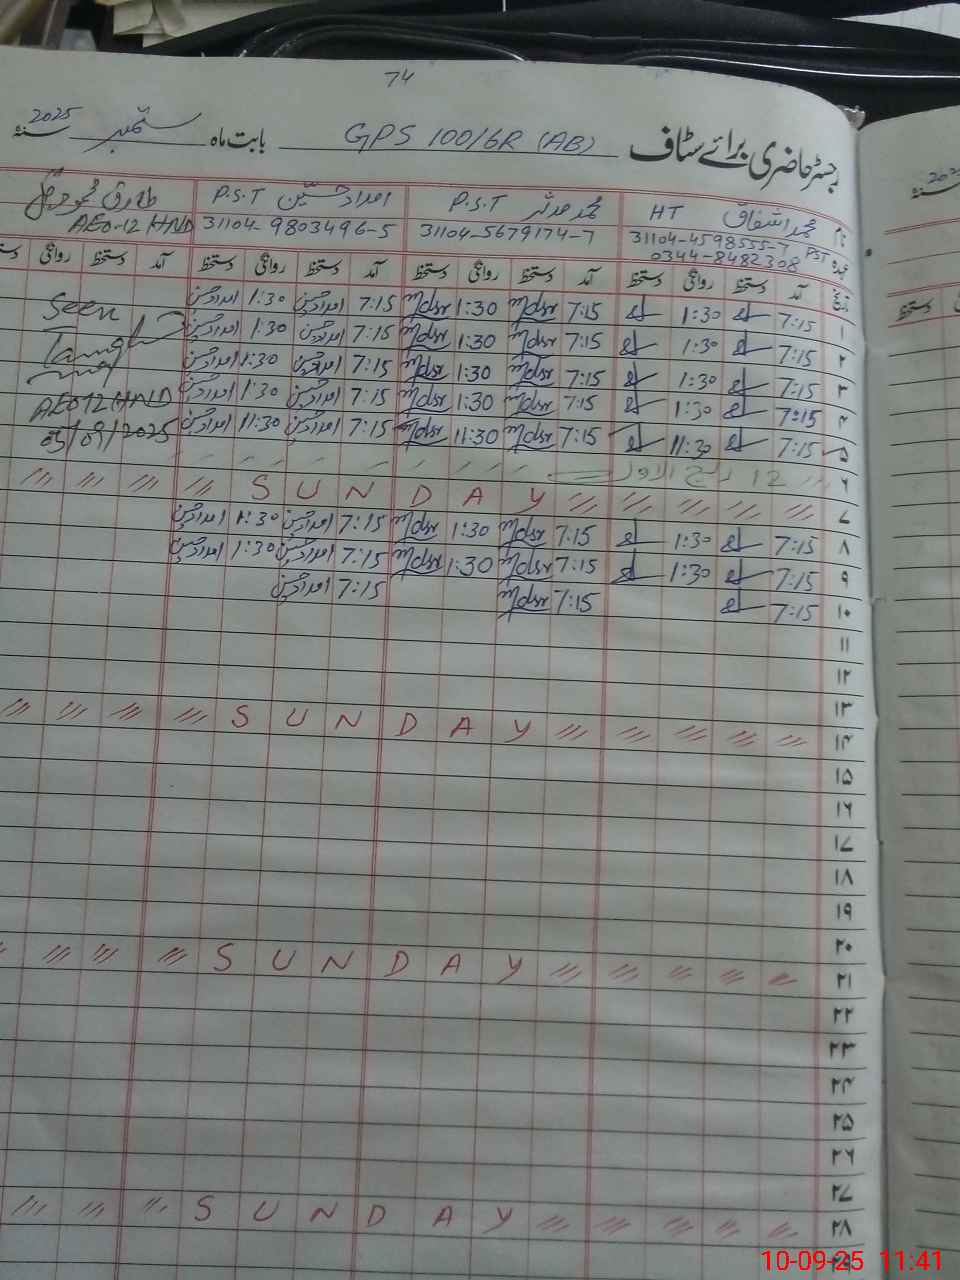 74
رجسٹر حاضری برائے سٹاف GPS 100/6R (AB) بابت ماہ ستمبر 2025 سنہ
نام محمد اشفاق HT محمد مدثر P.S.T امداد حسین P.S.T طارق محمود
عہدہ PST 31104-4598555-7 31104-5679174-7 31104-9803496-5 AEO-12 HND
0344-8482308
تاریخ آمد دستخط روانگی دستخط آمد دستخط روانگی دستخط آمد دستخط روانگی دستخط آمد دستخط روانگی دستخط
۱ 7:15 1:30 7:15 Mdsr 1:30 Mdsr 7:15 امداد حسین 1:30 امداد حسین Seen
۲ 7:15 1:30 7:15 Mdsr 1:30 Mdsr 7:15 امداد حسین 1:30 امداد حسین
۳ 7:15 1:30 7:15 Mdsr 1:30 Mdsr 7:15 امداد حسین 1:30 امداد حسین
۴ 7:15 1:30 7:15 Mdsr 1:30 Mdsr 7:15 امداد حسین 1:30 امداد حسین AEO 12 HND
۵ 7:15 11:30 7:15 Mdsr 11:30 Mdsr 7:15 امداد حسین 11:30 امداد حسین 05/09/2025
۶ 12 ربیع الاول
۷ SUNDAY
۸ 7:15 1:30 7:15 Mdsr 1:30 Mdsr 7:15 امداد حسین 1:30 امداد حسین
۹ 7:15 1:30 7:15 Mdsr 1:30 Mdsr 7:15 امداد حسین 1:30 امداد حسین
۱۰ 7:15 7:15 Mdsr 7:15 امداد حسین
۱۱
۱۲
۱۳
۱۴ SUNDAY
۱۵
۱۶
۱۷
۱۸
۱۹
۲۰
۲۱ SUNDAY
۲۲
۲۳
۲۴
۲۵
۲۶
۲۷
۲۸ SUNDAY
۲۹
10-09-25 11:41